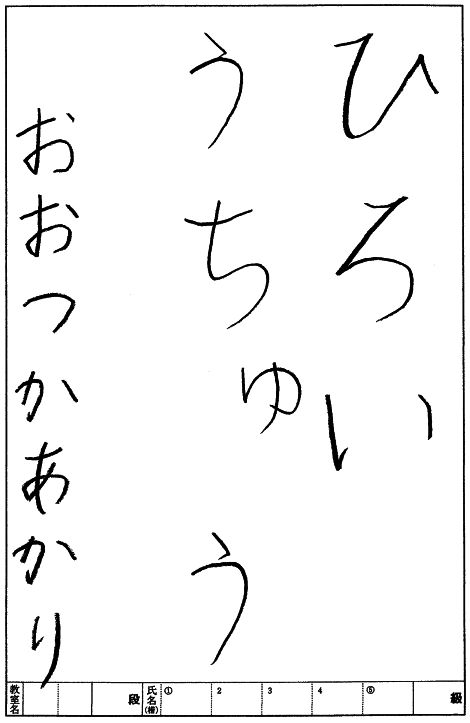 ひろい
うちゅう
おおつかあかり
級 ⑤ 4 3 2 ① 氏名(楷) 段 教室名